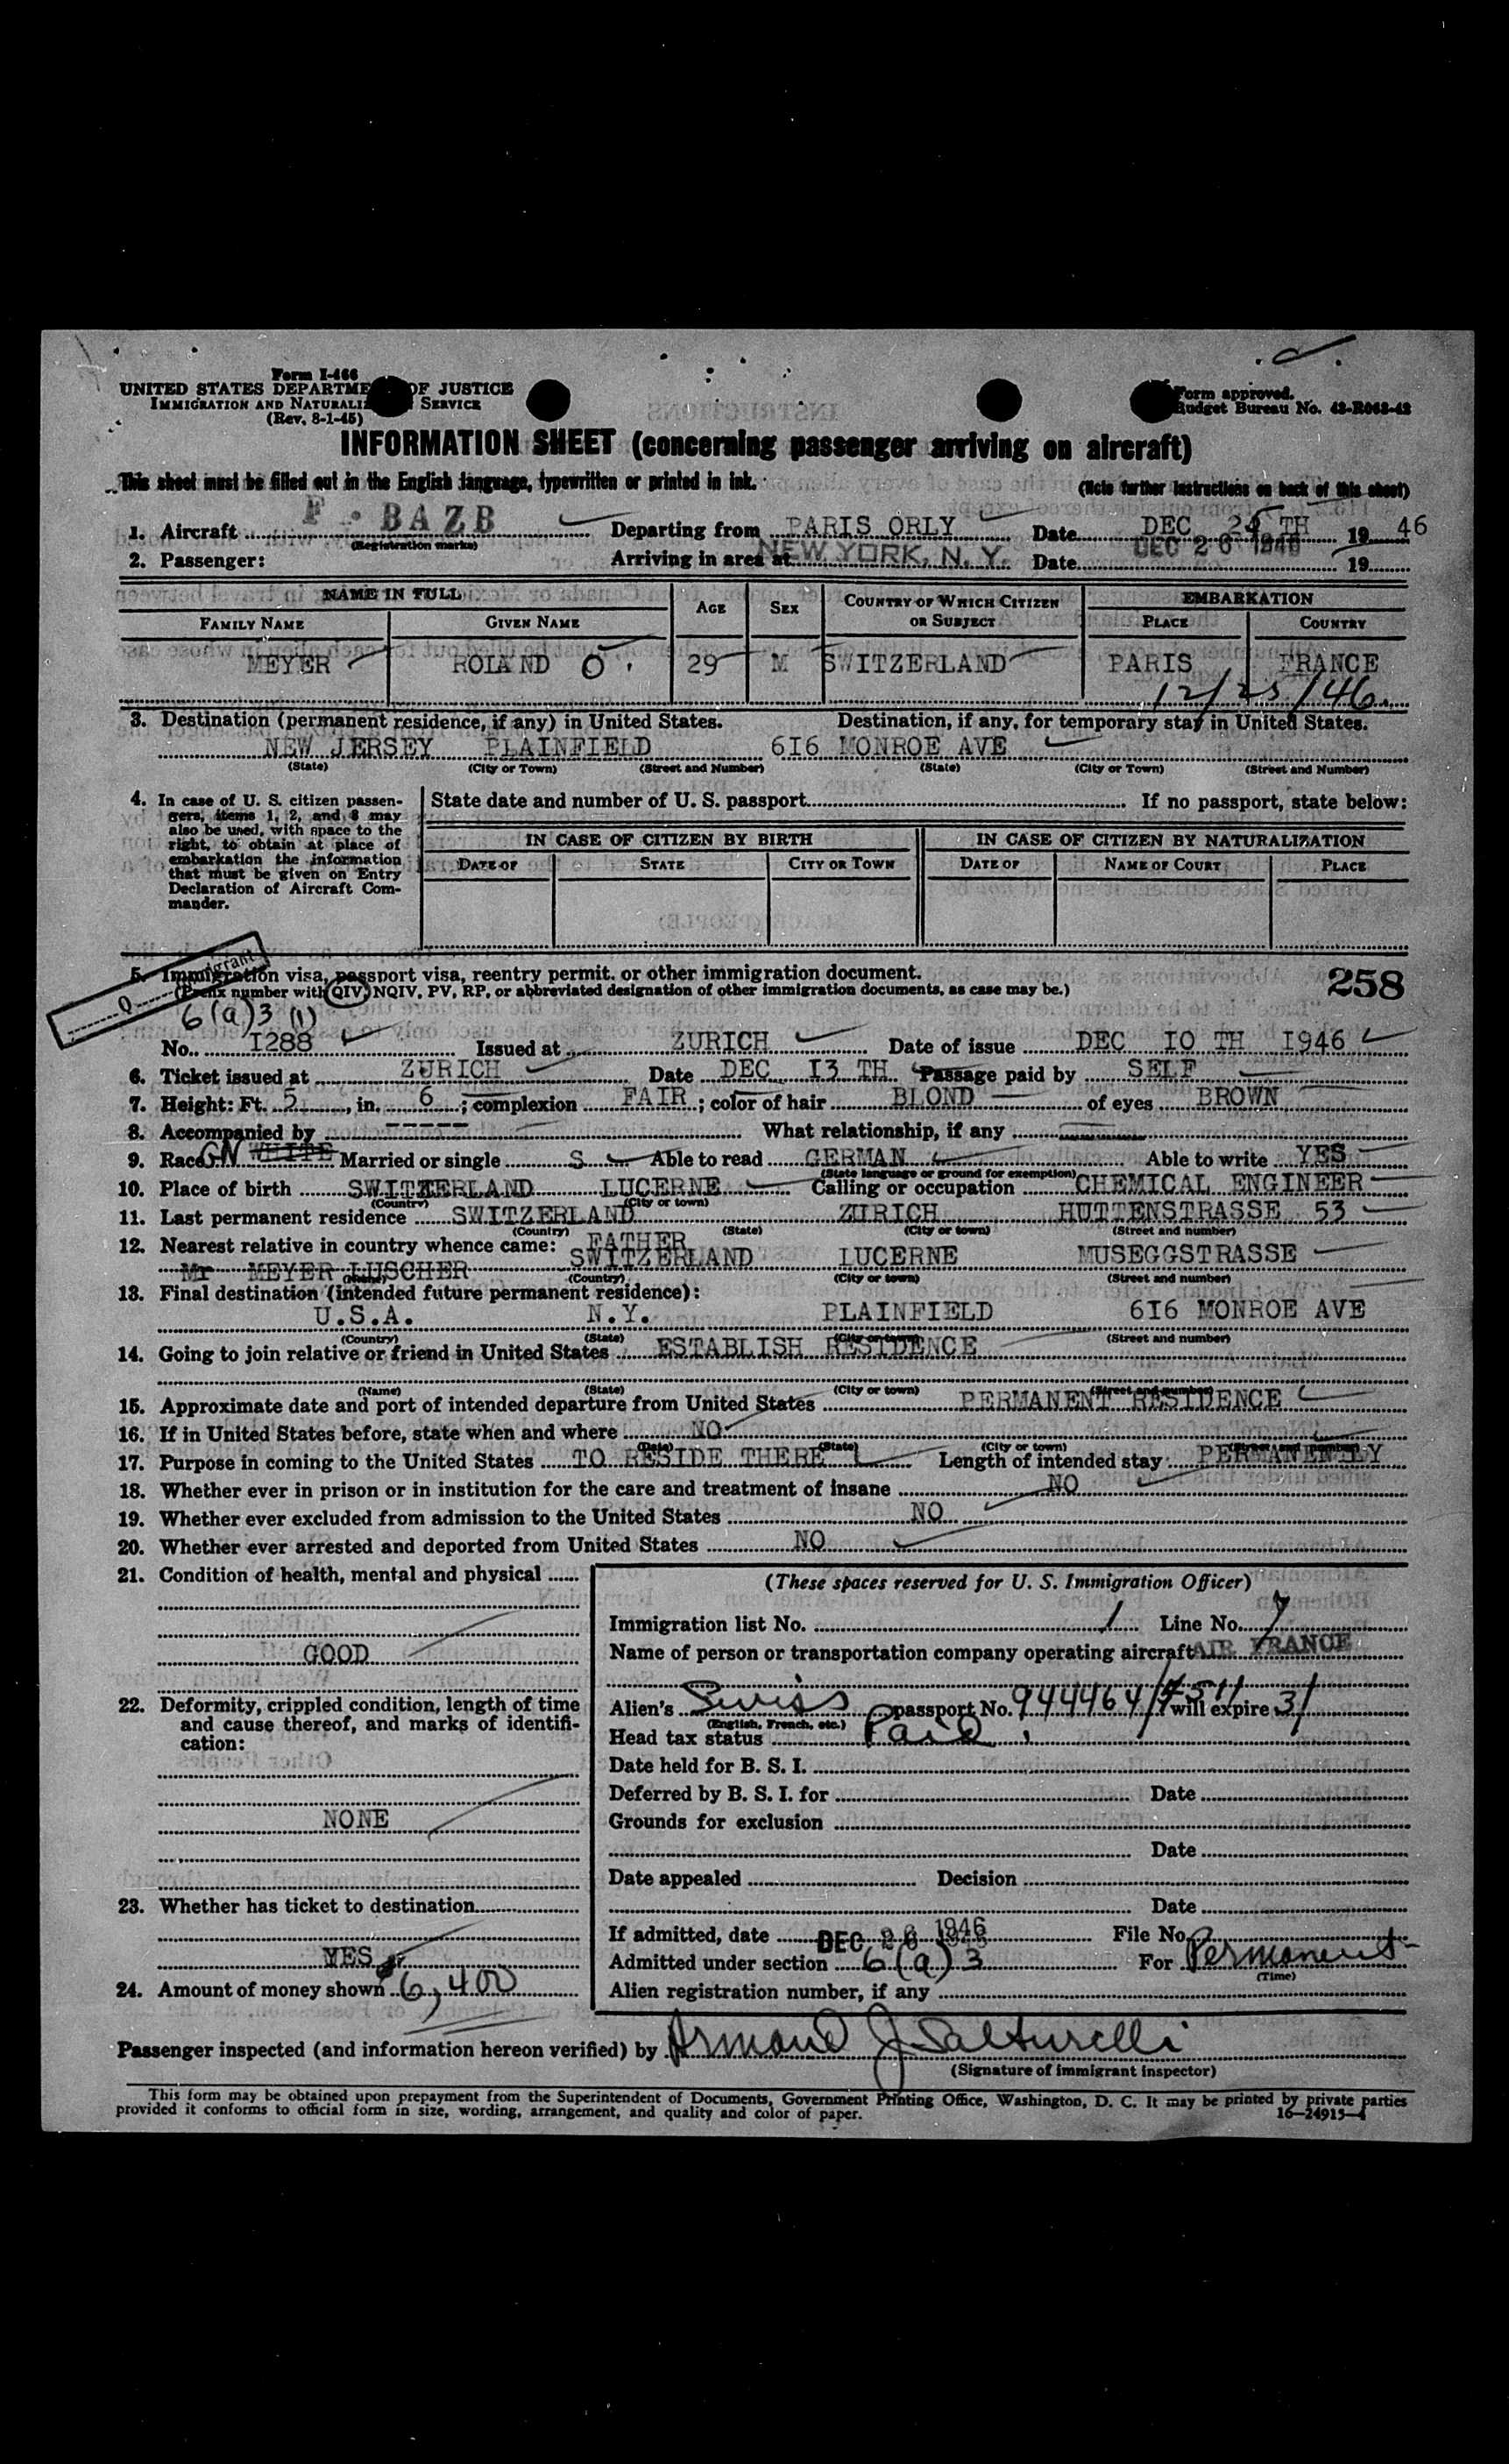 Form I-466
UNITED STATES DEPARTMENT OF JUSTICE
IMMIGRATION AND NATURALIZATION SERVICE
(Rev. 8-1-45)
Form approved.
Budget Bureau No. 43-R063-42
INFORMATION SHEET (concerning passenger arriving on aircraft)
This sheet must be filled out in the English language, typewritten or printed in ink.
(Note further instructions on back of this sheet)
1. Aircraft F - BAZB Departing from PARIS ORLY Date DEC 25 TH 1946
(Registration marks)
2. Passenger: Arriving in area at NEW YORK, N. Y. Date DEC 26 1946 19
NAME IN FULL AGE SEX COUNTRY OF WHICH CITIZEN OR SUBJECT EMBARKATION
FAMILY NAME GIVEN NAME PLACE COUNTRY
MEYER ROLAND O. 29 M SWITZERLAND PARIS FRANCE
12/25/46.
3. Destination (permanent residence, if any) in United States. Destination, if any, for temporary stay in United States.
NEW JERSEY PLAINFIELD 6I6 MONROE AVE
(State) (City or Town) (Street and Number) (State) (City or Town) (Street and Number)
4. In case of U. S. citizen passengers, items 1, 2, and 8 may also be used, with space to the right, to obtain at place of embarkation the information that must be given on Entry Declaration of Aircraft Commander.
State date and number of U. S. passport If no passport, state below:
IN CASE OF CITIZEN BY BIRTH IN CASE OF CITIZEN BY NATURALIZATION
DATE OF STATE CITY OR TOWN DATE OF NAME OF COURT PLACE
5. Immigration visa, passport visa, reentry permit, or other immigration document.
(Prefix number with QIV, NQIV, PV, RP, or abbreviated designation of other immigration documents, as case may be.)
258
6(a)3 (1)
No. I288 Issued at ZURICH Date of issue DEC IO TH I946
6. Ticket issued at ZURICH Date DEC I3 TH Passage paid by SELF
7. Height: Ft. 5, in. 6; complexion FAIR; color of hair BLOND of eyes BROWN
8. Accompanied by ----- What relationship, if any
9. Race GN WHITE Married or single S Able to read GERMAN Able to write YES
(State language or ground for exemption)
10. Place of birth SWITZERLAND LUCERNE Calling or occupation CHEMICAL ENGINEER
(Country) (City or town)
11. Last permanent residence SWITZERLAND ZURICH HUTTENSTRASSE 53
(Country) (State) (City or town) (Street and number)
12. Nearest relative in country whence came: FATHER
Mr MEYER LUSCHER SWITZERLAND LUCERNE MUSEGGSTRASSE
(Name) (Country) (City or town) (Street and number)
13. Final destination (intended future permanent residence):
U.S.A. N.Y. PLAINFIELD 6I6 MONROE AVE
(Country) (State) (City or town) (Street and number)
14. Going to join relative or friend in United States ESTABLISH RESIDENCE
(Name) (State) (City or town) (Street and number)
15. Approximate date and port of intended departure from United States PERMANENT RESIDENCE
16. If in United States before, state when and where NO
(Date) (State) (City or town) (Street and number)
17. Purpose in coming to the United States TO RESIDE THERE Length of intended stay PERMANENTLY
18. Whether ever in prison or in institution for the care and treatment of insane NO
19. Whether ever excluded from admission to the United States NO
20. Whether ever arrested and deported from United States NO
21. Condition of health, mental and physical
GOOD
22. Deformity, crippled condition, length of time and cause thereof, and marks of identification:
NONE
23. Whether has ticket to destination
YES
24. Amount of money shown $6,400
(These spaces reserved for U. S. Immigration Officer)
Immigration list No. 1 Line No. 7
Name of person or transportation company operating aircraft AIR FRANCE
Alien's Swiss passport No. 944464 will expire
(English, French, etc.)
Head tax status Paid
Date held for B. S. I.
Deferred by B. S. I. for Date
Grounds for exclusion
Date
Date appealed Decision
Date
If admitted, date DEC 26 1946 File No.
Admitted under section 6(a)3 For Permanent
(Time)
Alien registration number, if any
Passenger inspected (and information hereon verified) by Armand J Salturelli
(Signature of immigrant inspector)
This form may be obtained upon prepayment from the Superintendent of Documents, Government Printing Office, Washington, D. C. It may be printed by private parties
provided it conforms to official form in size, wording, arrangement, and quality and color of paper.
16—24915-4